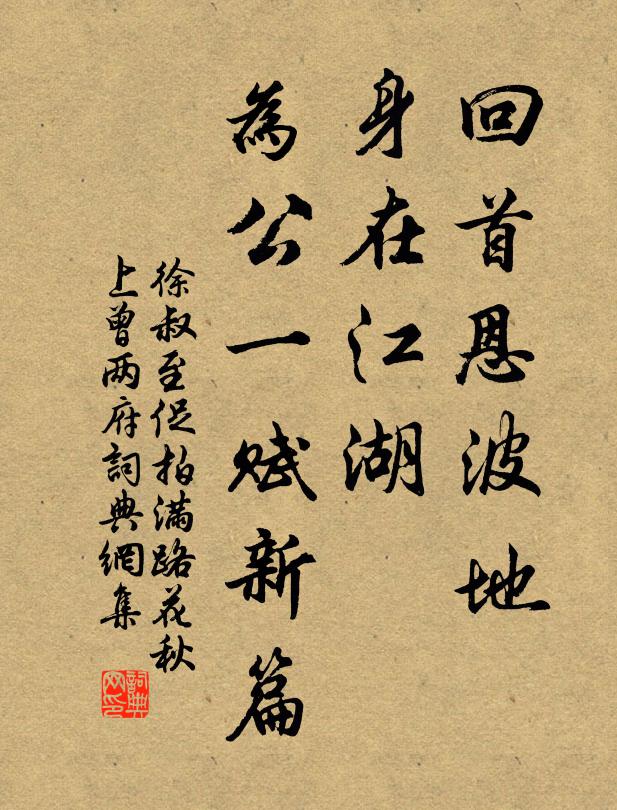 回首恩波地
身在江湖
為公一赋新篇
徐叔至促拍满路花秋
上曾两府詞典網集
詞典
网印